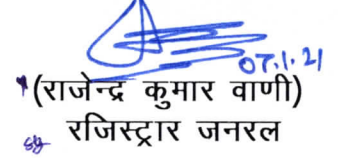 07.1.21
(राजेन्द्र कुमार वाणी)
रजिस्ट्रार जनरल